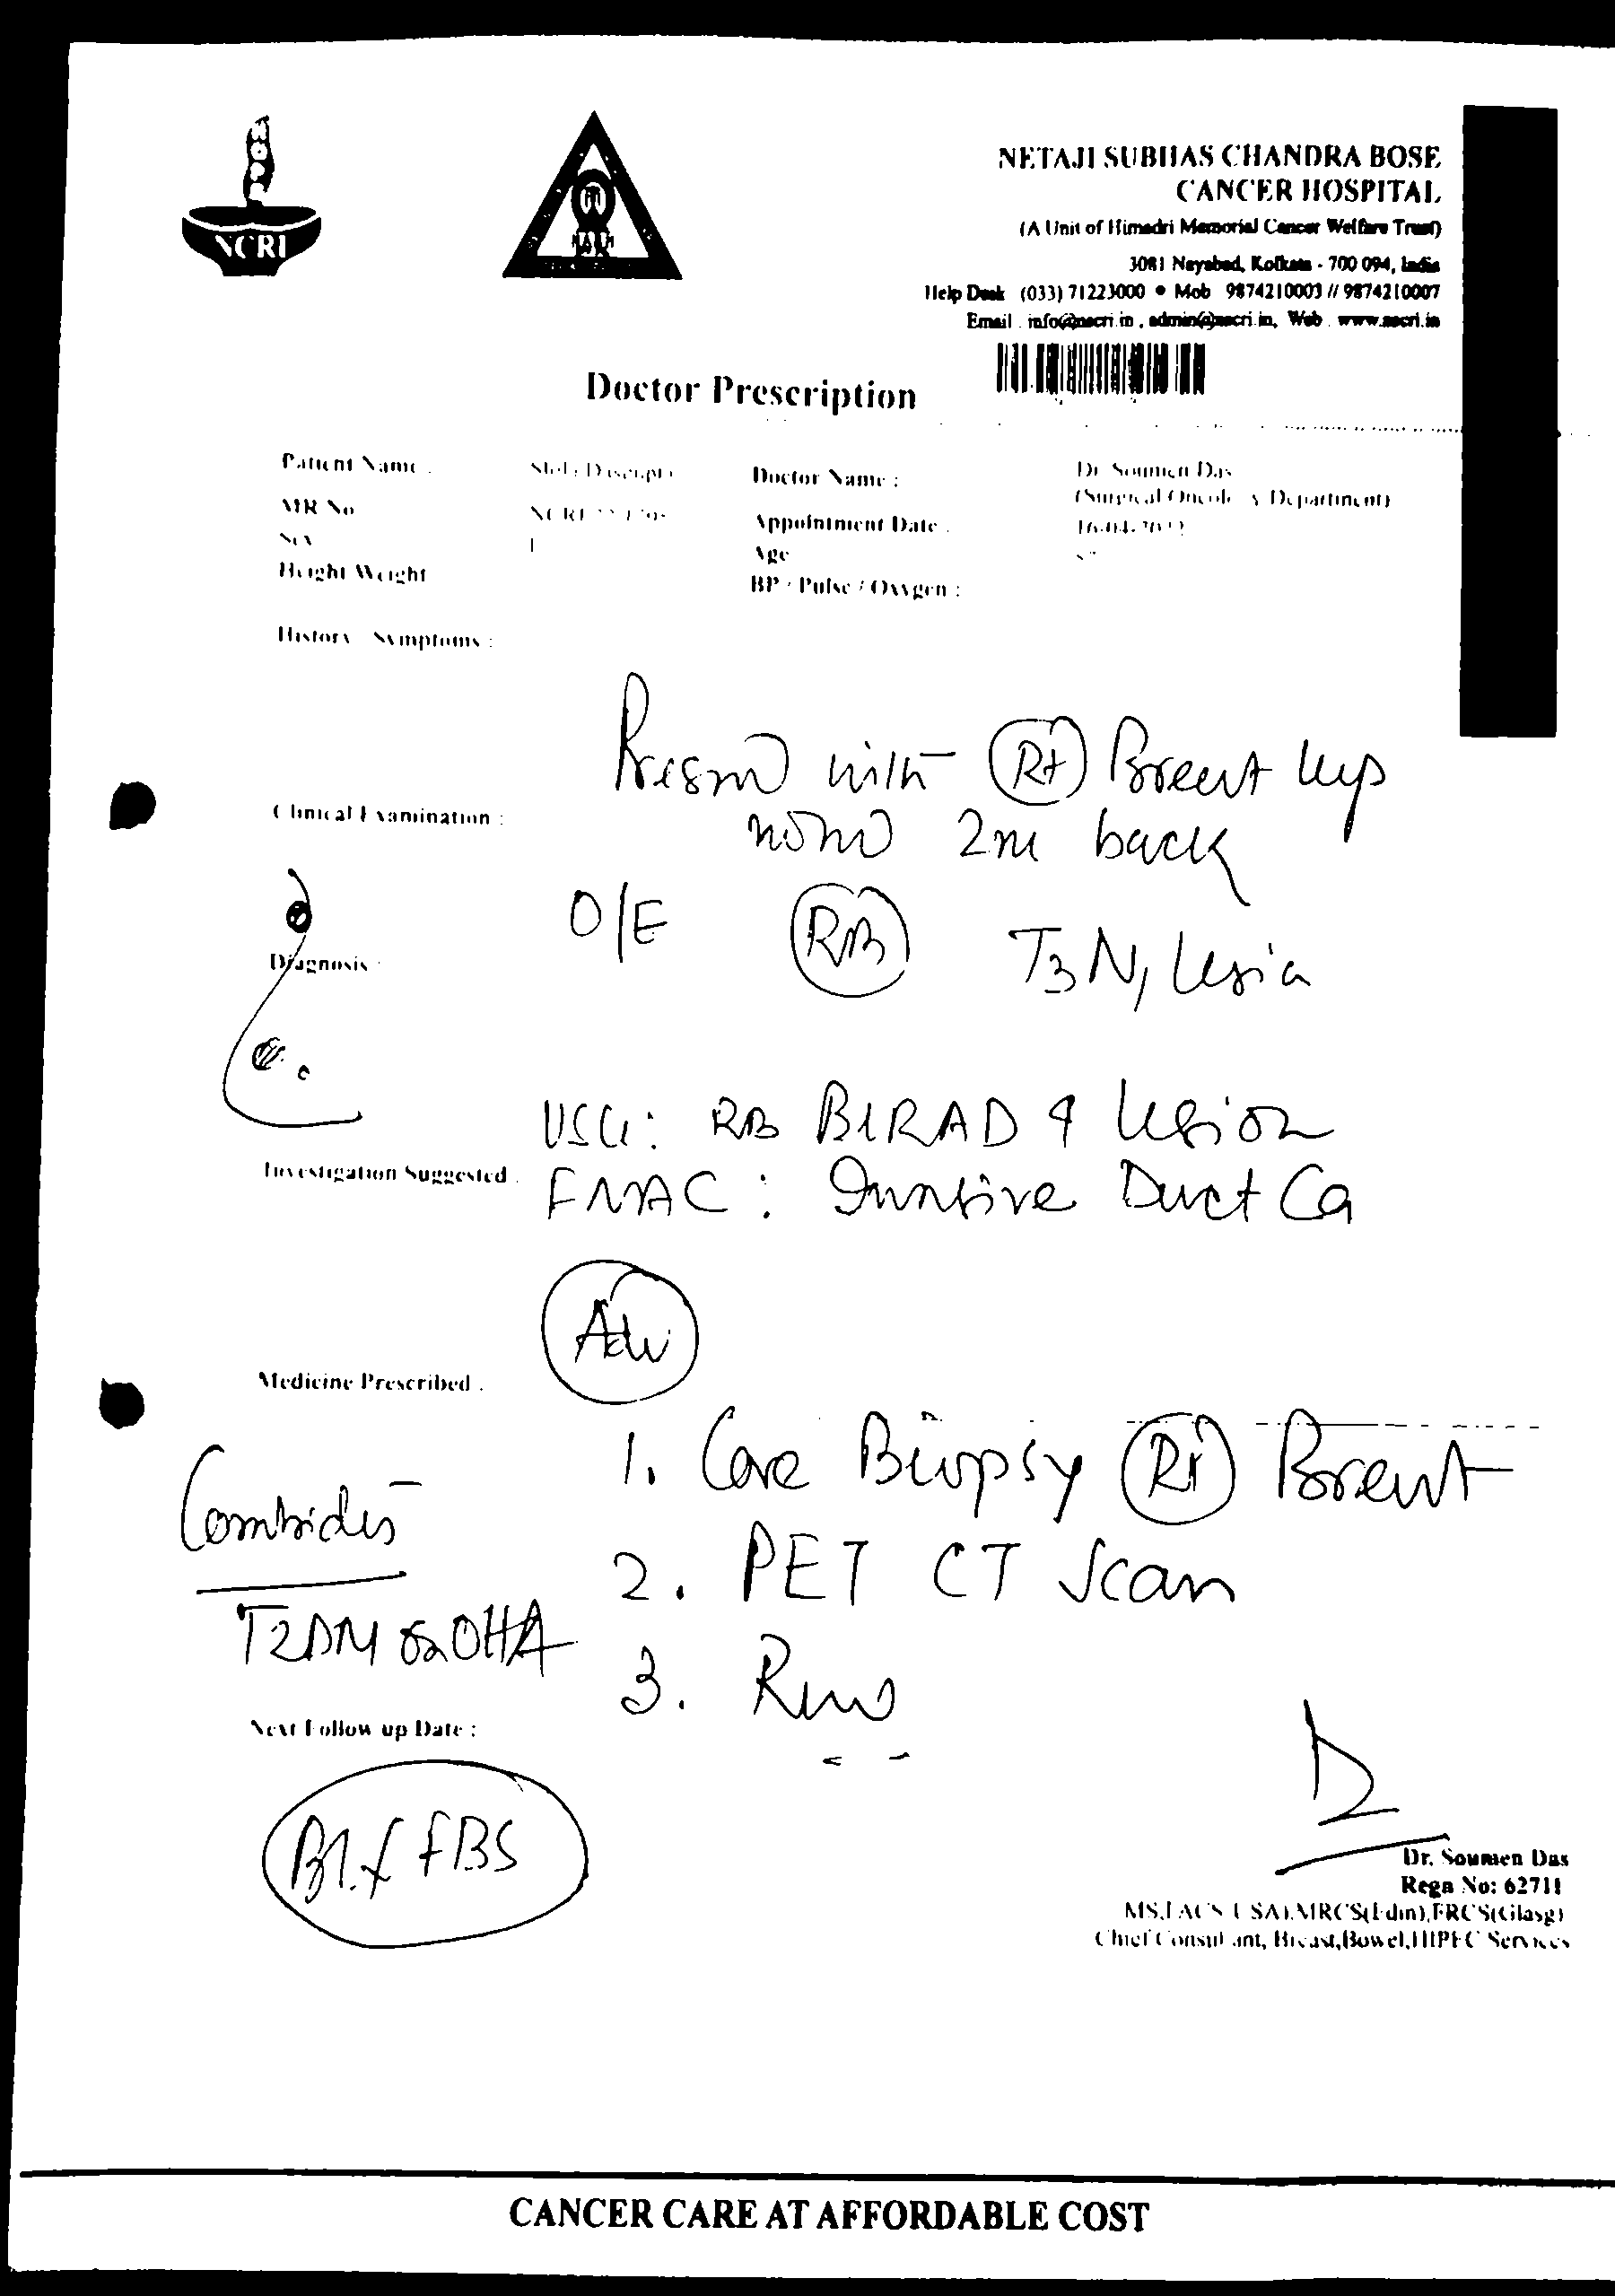 HOPE
NCRI
NETAJI SUBHAS CHANDRA BOSE
CANCER HOSPITAL
(A Unit of Himadri Memorial Cancer Welfare Trust)
3081 Nayabad, Kolkata - 700 094, India
Help Desk (033) 71223000 • Mob 9874210003 // 9874210007
Email . info@nscri.in , admin@nscri.in, Web . www.nscri.in
Doctor Prescription
Patient Name :
Doctor Name : Dr Soumen Das
(Surgical Oncology Department)
MR No
Appointment Date :
Sex
Age
Height Weight
BP / Pulse / Oxygen :
History Symptoms :
with Rt Breast lump
2m back
Clinical Examination :
O/E RB T3N1 lesion
Diagnosis :
USG: RB BIRAD 4 lesion
Investigation Suggested .
FNAC : Invasive Duct Ca
Adv
Medicine Prescribed .
1. Core Biopsy Rt Breast
2. PET CT Scan
3.
T2DM on OHA
Next Follow up Date :
FBS
Dr. Soumen Das
Regn No: 62711
MS,FACS(USA),MRCS(Edin),FRCS(Glasg)
Chief Consultant, Breast,Bowel,HIPEC Services
CANCER CARE AT AFFORDABLE COST